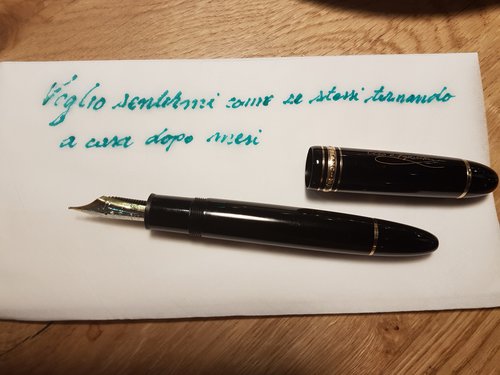 Voglio sentirmi come se stessi tornando
a casa dopo mesi